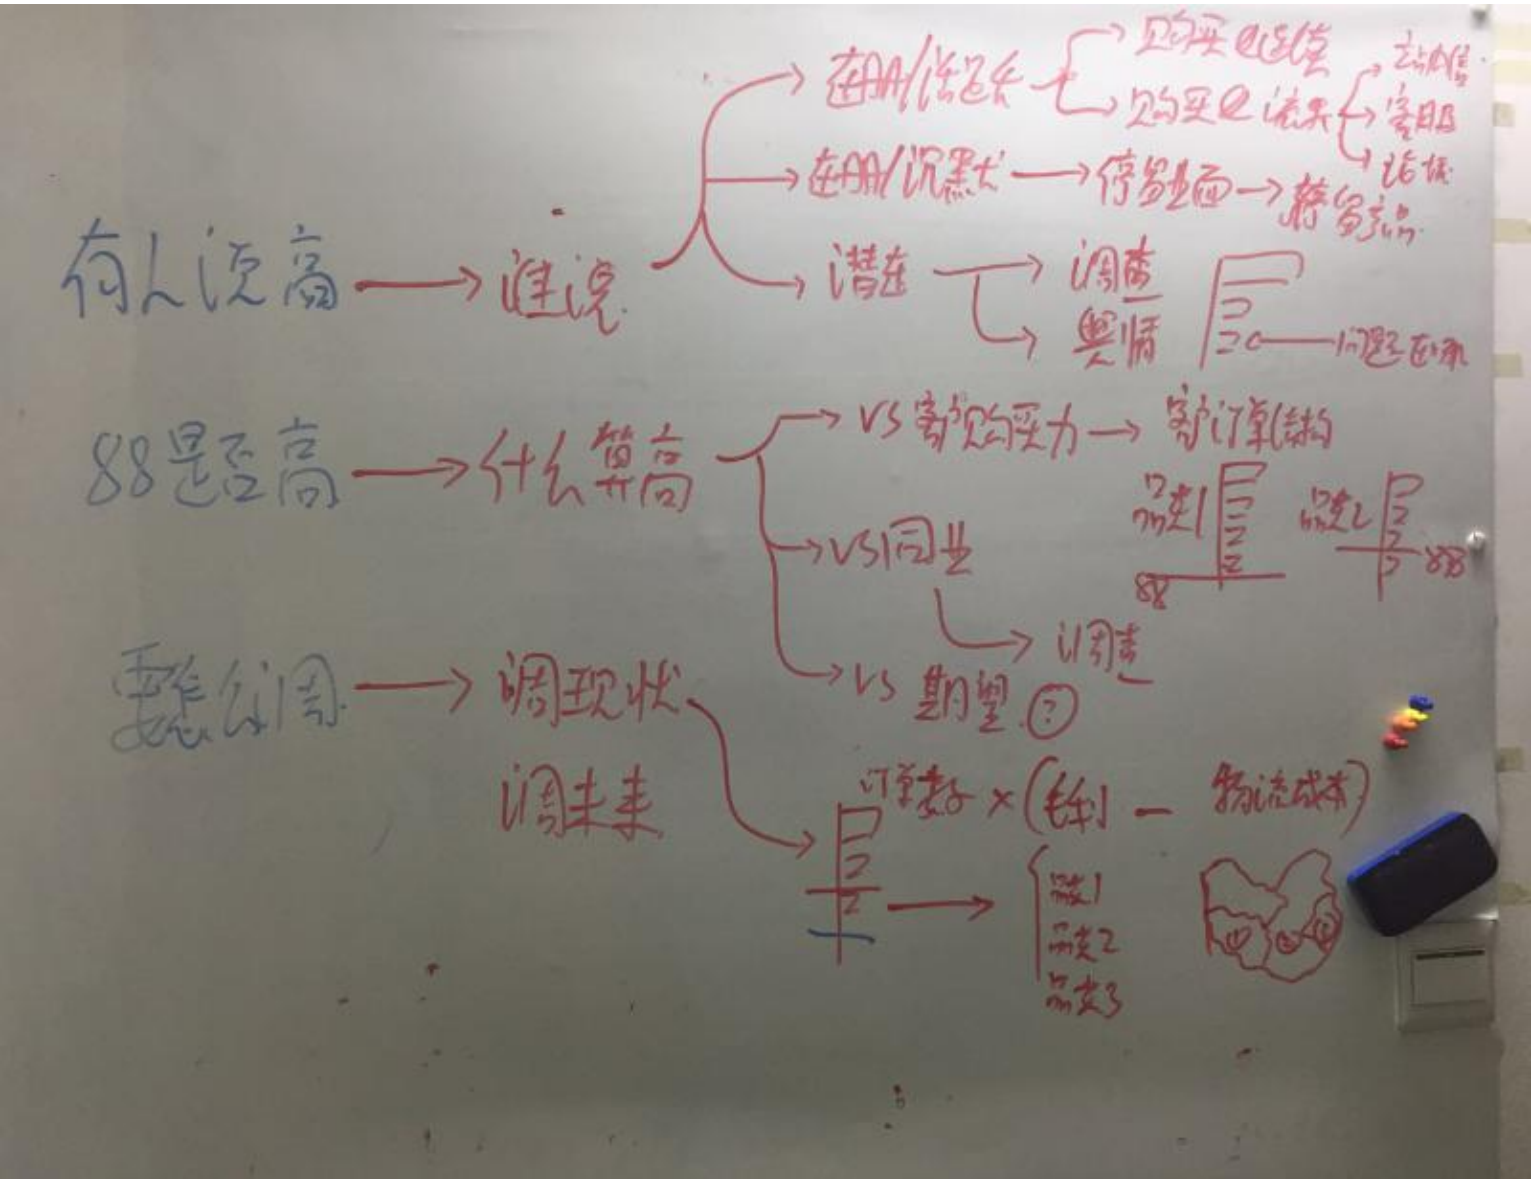 有人说高 → 谁说
在用/活跃 → 购买也连续
购买也流失 → 站内信
客服
论坛
在用/沉默 → 停留页面 → 停留产品
潜在 → 调查
舆情
问题在哪
88是否高 → 什么算高
VS 客户购买力 → 客户订单结构
品类1
品类2
88
88
VS 同业
调查
VS 期望 ?
要怎么调 → 调现状
调未来
订单表子 × (毛利 − 物流成本)
品类1
品类2
品类3